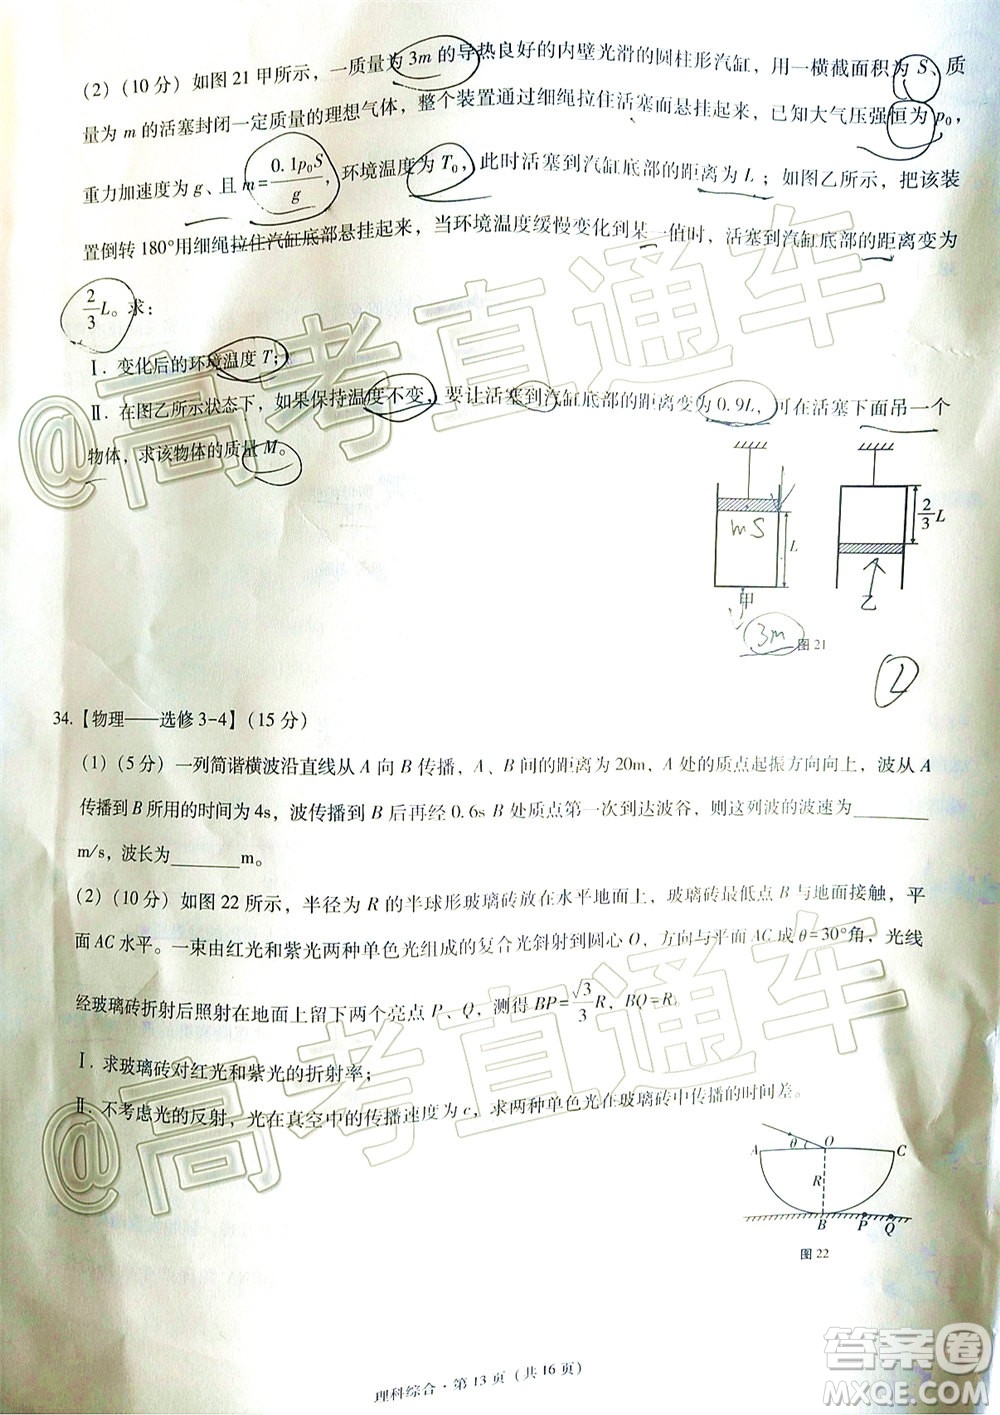 (2)(10 分)如图 21 甲所示，一质量为 3m 的导热良好的内壁光滑的圆柱形汽缸，用一横截面积为 S、质
量为 m 的活塞封闭一定质量的理想气体，整个装置通过细绳拉住活塞而悬挂起来，已知大气压强恒为 p₀，
重力加速度为 g、且 m=0.1p₀S/g，环境温度为 T₀，此时活塞到汽缸底部的距离为 L；如图乙所示，把该装
置倒转 180°用细绳拉住汽缸底部悬挂起来，当环境温度缓慢变化到某一值时，活塞到汽缸底部的距离变为
2/3 L。求：
Ⅰ. 变化后的环境温度 T；
Ⅱ. 在图乙所示状态下，如果保持温度不变，要让活塞到汽缸底部的距离变为 0.9L，可在活塞下面吊一个
物体，求该物体的质量 M。
2/3 L
mS
L
甲
乙
3m
图 21
2
34.【物理——选修 3-4】(15 分)
(1)(5 分)一列简谐横波沿直线从 A 向 B 传播，A、B 间的距离为 20m，A 处的质点起振方向向上，波从 A
传播到 B 所用的时间为 4s，波传播到 B 后再经 0.6s B 处质点第一次到达波谷，则这列波的波速为________
m/s，波长为_______m。
(2)(10 分)如图 22 所示，半径为 R 的半球形玻璃砖放在水平地面上，玻璃砖最低点 B 与地面接触，平
面 AC 水平。一束由红光和紫光两种单色光组成的复合光斜射到圆心 O，方向与平面 AC 成 θ=30°角，光线
经玻璃砖折射后照射在地面上留下两个亮点 P、Q，测得 BP=√3/3 R，BQ=R。
Ⅰ. 求玻璃砖对红光和紫光的折射率；
Ⅱ. 不考虑光的反射，光在真空中的传播速度为 c，求两种单色光在玻璃砖中传播的时间差。
A θ O C
R
B P Q
图 22
理科综合·第 13 页（共 16 页）
@高考直通车
@高考直通车
答案圈
MXQE.COM